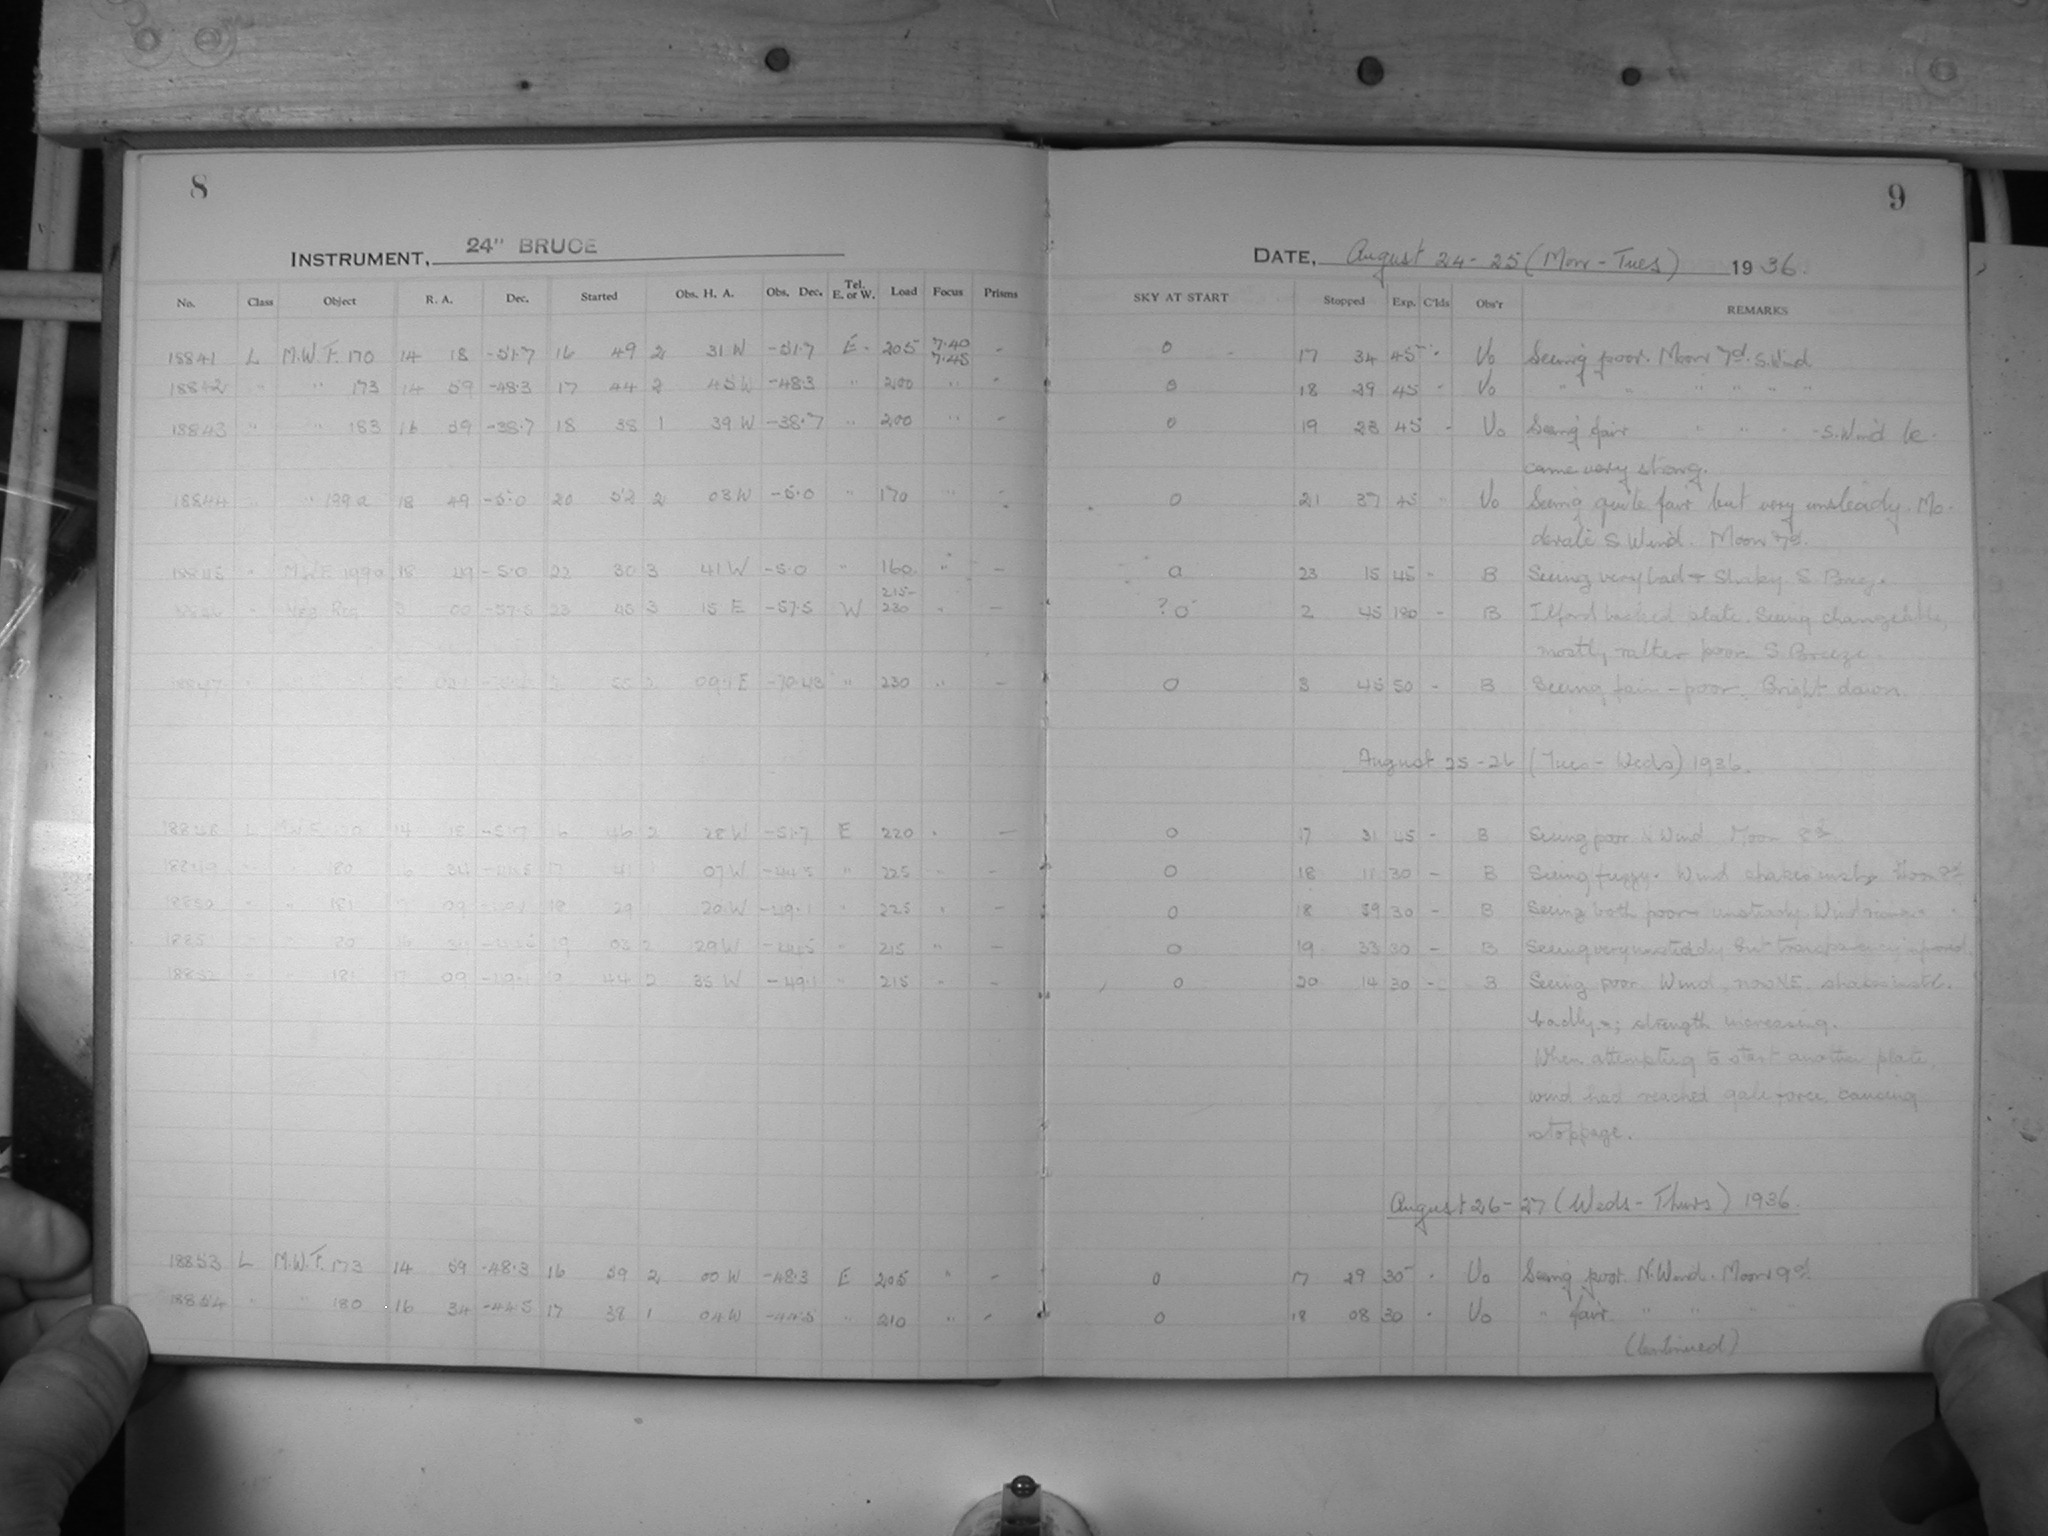 8
9
INSTRUMENT, 24" BRUCE
DATE, August 24-25 (Mon-Tues) 1936.
No. Class Object R. A. Dec. Started Obs. H. A. Obs. Dec. Tel. E. or W. Load Focus Prisms SKY AT START Stopped Exp. C'lds Obs'r REMARKS
18841 L M.W.F. 170 14 18 -51.7 16 49 2 31 W -51.7 E 205 7.40 7.45 - 0 17 34 45 - Vo Seeing poor. Moon 7d. S. Wind
18842 " " 173 14 59 -48.3 17 44 2 45 W -48.3 " 200 " - 0 18 29 45 - Vo " " " " " "
18843 " " 183 16 59 -38.7 18 38 1 39 W -38.7 " 200 " - 0 19 23 45 - Vo Seeing fair " " - S. Wind be-
came very strong.
18844 " " 199a 18 49 -5.0 20 52 2 03 W -5.0 " 170 " - 0 21 37 45 " Vo Seeing quite fair but very unsteady. Mo-
derate S Wind. Moon 7d.
18845 " M.W.F. 199a 18 49 -5.0 22 30 3 41 W -5.0 " 160 " - a 23 15 45 - B Seeing very bad + Shaky. S. Breeze.
18846 " -57.5 23 45 3 15 E -57.5 W 215- 230 " - ? 0 2 45 180 - B Ilford backed plate. Seeing changeable,
mostly rather poor. S. Breeze.
18847 09 E " 230 " - 0 3 45 50 - B Seeing fair - poor. Bright dawn.
August 25-26 (Tues-Weds) 1936.
18848 L M.W.F. 170 14 18 -51.7 16 46 2 28 W -51.7 E 220 " - 0 17 31 45 - B Seeing poor. N Wind. Moon 8d.
18849 " " 180 16 34 -44.5 17 41 1 07 W -44.5 " 225 " - 0 18 11 30 - B Seeing fuzzy. Wind shakes inst. Moon 8d
18850 " " 181 17 09 -49.1 18 29 1 20 W -49.1 " 225 " - 0 18 59 30 - B Seeing both poor + unsteady. Wind rising.
18851 " " 180 16 34 -44.5 19 03 2 29 W -44.5 " 215 " - 0 19 33 30 - B Seeing very unsteady but transparency
18852 " " 181 17 09 -49.1 19 44 2 35 W -49.1 " 215 " - 0 20 14 30 - B Seeing poor. Wind, now NE, shakes inst.
badly; strength increasing.
When attempting to start another plate,
wind had reached gale force, causing
stoppage.
August 26-27 (Weds-Thurs) 1936.
18853 L M.W.F. 173 14 59 -48.3 16 59 2 00 W -48.3 E 205 " - 0 17 29 30 - Vo Seeing poor. N. Wind. Moon 9d.
18854 " " 180 16 34 -44.5 17 38 1 04 W -44.5 " 210 " - 0 18 08 30 - Vo " fair. " "
(Continued)